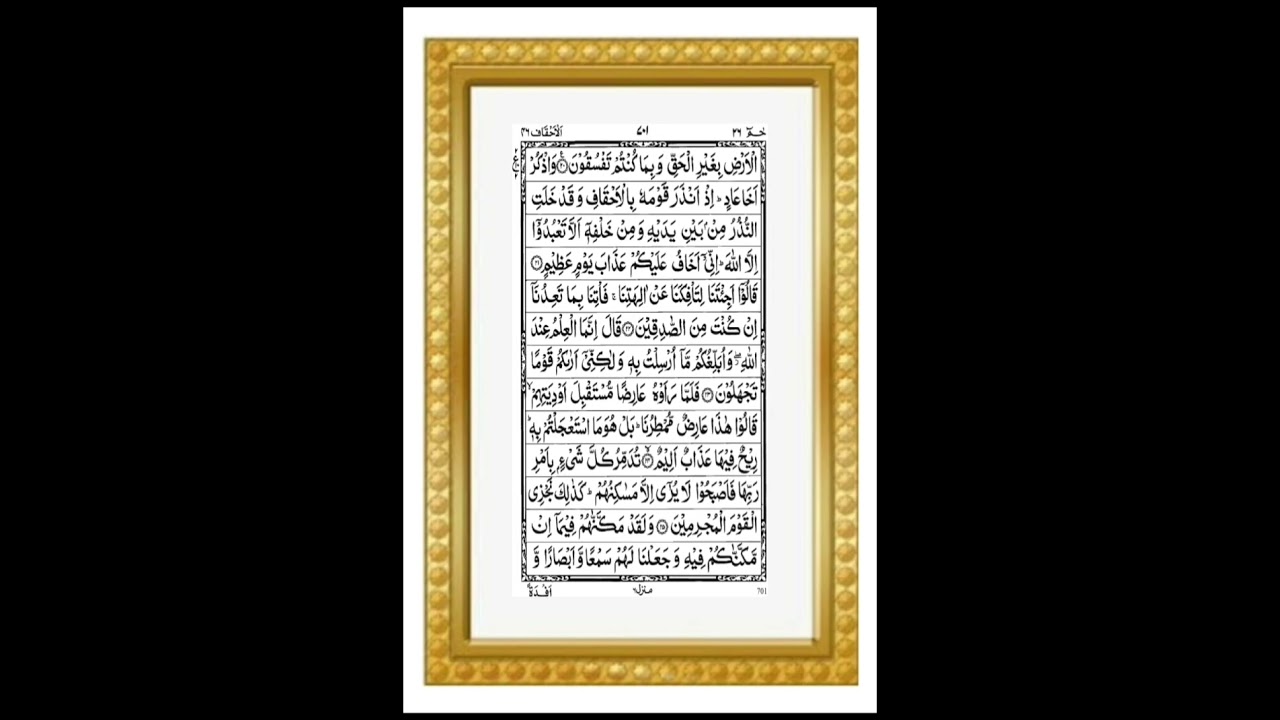 حٰمٓ ۲۶ ۷۰۱ الْاَحْقَاف ۴۶
الْاَرْضِ بِغَيْرِ الْحَقِّ وَ بِمَا كُنْتُمْ تَفْسُقُوْنَ ۟﴿۲۰﴾ وَاذْكُرْ
اَخَا عَادٍ ؕ اِذْ اَنْذَرَ قَوْمَهٗ بِالْاَحْقَافِ وَ قَدْ خَلَتِ
النُّذُرُ مِنْۢ بَيْنِ يَدَيْهِ وَ مِنْ خَلْفِهٖۤ اَلَّا تَعْبُدُوْۤا
اِلَّا اللّٰهَ ؕ اِنِّيْۤ اَخَافُ عَلَيْكُمْ عَذَابَ يَوْمٍ عَظِيْمٍ ﴿۲۱﴾
قَالُوْۤا اَجِئْتَنَا لِتَاْفِكَنَا عَنْ اٰلِهَتِنَا ۚ فَاْتِنَا بِمَا تَعِدُنَاۤ
اِنْ كُنْتَ مِنَ الصّٰدِقِيْنَ ﴿۲۲﴾ قَالَ اِنَّمَا الْعِلْمُ عِنْدَ
اللّٰهِ ۖؗ وَ اُبَلِّغُكُمْ مَّاۤ اُرْسِلْتُ بِهٖ وَ لٰكِنِّيْۤ اَرٰىكُمْ قَوْمًا
تَجْهَلُوْنَ ﴿۲۳﴾ فَلَمَّا رَاَوْهُ عَارِضًا مُّسْتَقْبِلَ اَوْدِيَتِهِمْ ۙ
قَالُوْا هٰذَا عَارِضٌ مُّمْطِرُنَا ؕ بَلْ هُوَ مَا اسْتَعْجَلْتُمْ بِهٖ ؕ
رِيْحٌ فِيْهَا عَذَابٌ اَلِيْمٌ ۙ﴿۲۴﴾ تُدَمِّرُ كُلَّ شَيْءٍۭ بِاَمْرِ
رَبِّهَا فَاَصْبَحُوْا لَا يُرٰۤى اِلَّا مَسٰكِنُهُمْ ؕ كَذٰلِكَ نَجْزِي
الْقَوْمَ الْمُجْرِمِيْنَ ﴿۲۵﴾ وَ لَقَدْ مَكَّنّٰهُمْ فِيْمَاۤ اِنْ
مَّكَّنّٰكُمْ فِيْهِ وَ جَعَلْنَا لَهُمْ سَمْعًا وَّ اَبْصَارًا وَّ
اَفْـِٕدَةً منزل ۶ 701